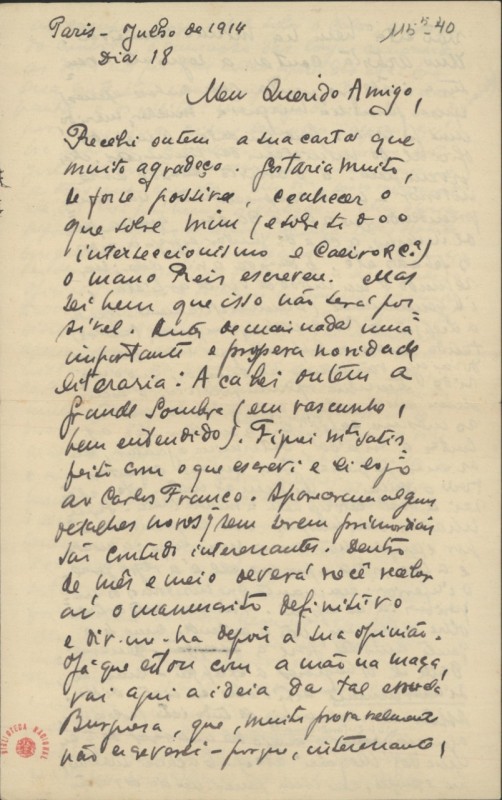 Paris - Julho de 1914
115⁵-40
Dia 18
Meu Querido Amigo,
Recebi ontem a sua carta que
muito agradeço. Gostaria muito,
se fosse possivel, conhecer o
que sobre mim (e sobre ti o
interseccionismo e Caeiro & Cª)
o mano Reis escreveu. Mas
sei bem que isso não será pos-
sivel. Antes de mais nada uma
importante e propera novidade
literaria: Acabei ontem a
Grande Sombra (em rascunho,
bem entendido). Fiquei mtº satis-
feito com o que escrevi e li logo
ao Carlos Franco. Apareceram alguns
detalhes novos q̃ sem serem primordiais
são contudo interessantes. Dentro
de mês e meio deverá você receber
aí o manuscrito definitivo
e dir-me-ha depois a sua opinião.
Já que estou com a mão na massa,
vai aqui a ideia da tal
Burguesa, que, muito provavelmente
não escreverei - porque, interessante,
BIBLIOTECA NACIONAL